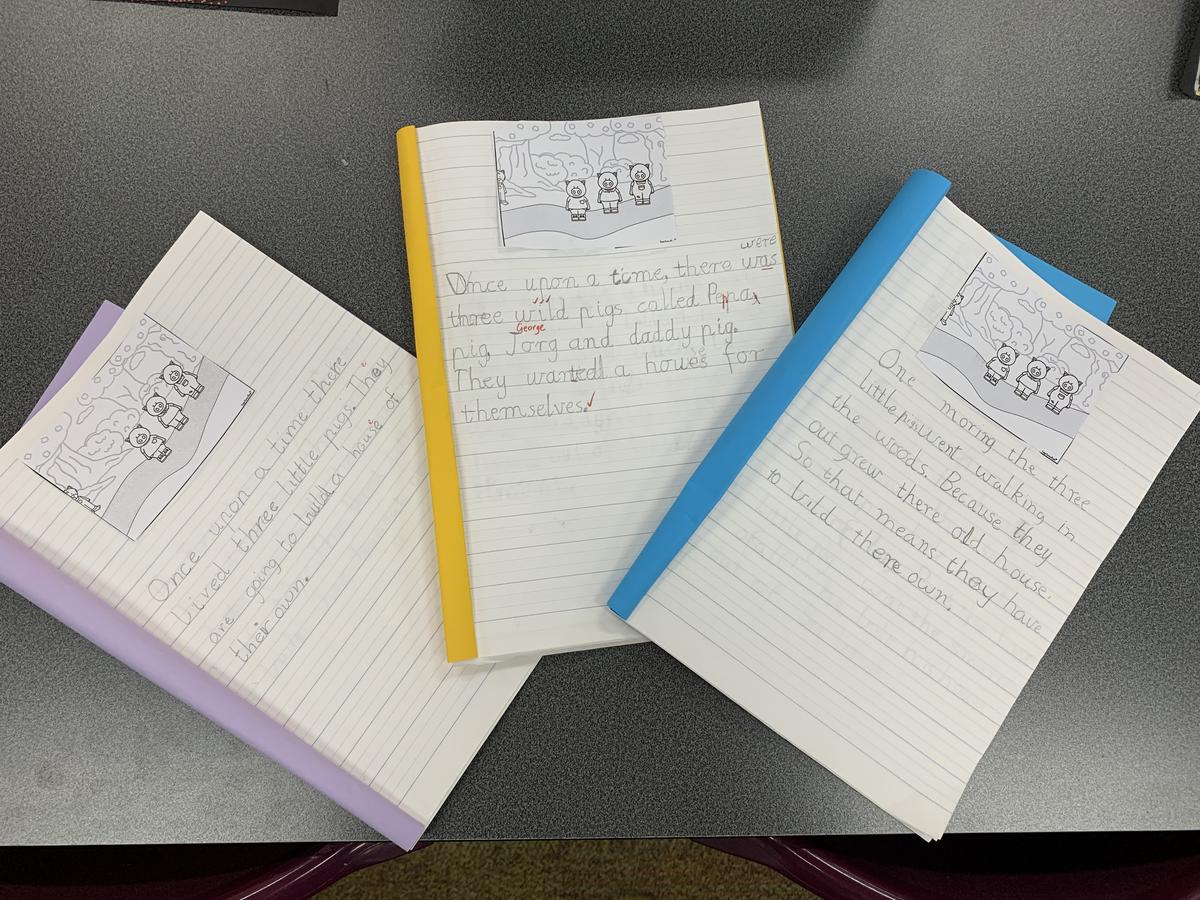 Once upon a time there
lived three little pigs. They
are going to build a house of
their own.
were
Once upon a time, there was
three wild pigs called Peppa
George
pig, Jorg and daddy pig.
They wanted a houes for
themselves.
One moring the three
little pigs went walking in
the woods. Because they
out grew there old house.
So that means they have
to bild there own.